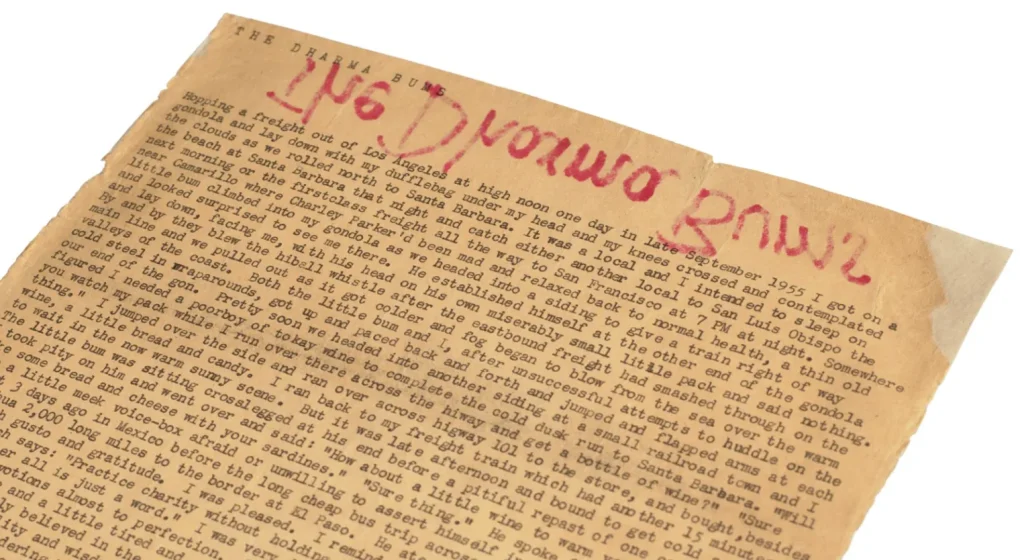 THE DHARMA BUMS
The Dharma Bums
Hopping a freight out of Los Angeles at high noon one day in late September 1955 I got on a
gondola and lay down with my dufflebag under my head and my knees crossed and contemplated
the clouds as we rolled north to Santa Barbara. It was a local and I intended to sleep on
the beach at Santa Barbara that night and catch either another local to San Luis Obispo the
next morning or the firstclass freight all the way to San Francisco at 7 PM at night. Somewhere
near Camarillo where Charley Parker'd been mad and relaxed back to normal health, a thin old
little bum climbed into my gondola as we headed into a siding to give a train right of way
and looked surprised to see me there. He established himself at the other end of the gondola
and lay down, facing me, with his head on his own miserably small little pack and said nothing.
By and by they blew the hiball whistle after the eastbound freight had smashed through on the
main line and we pulled out as it got colder and fog began to blow from the sea over the warm
valleys of the coast. Both the little bum and I, after unsuccessful attempts to huddle on the
cold steel in wraparounds, got up and paced back and forth and jumped and flapped arms at each
our end of the gon. Pretty soon we headed into another siding at a small railroad town and I
figured I needed a poorboy of tokay wine to complete the cold dusk run to Santa Barbara. "Will
you watch my pack while I run over there across the hiway and get a bottle of wine?" "Sure
thing." I jumped over the side and ran over across higway 101 to the store, and bought,besides
wine, a little bread and candy. I ran back to my freight train which had another 15 minutes
to wait in the now warm sunny scene. But it was late afternoon and bound to get cold
The little bum was sitting crosslegged at his end before a pitiful repast of one
took pity on him and went over and said: "How about a little wine to warm
some bread and cheese with your sardines." "Sure thing." He spoke
a little meek voice-box afraid unwilling to assert himself
3 days ago in Mexico before the long cheap bus trip across
2,000 long miles to the border at El Paso. He ate
gusto and gratitude. I was pleased. I
says: "Practice charity without holding
all is just a word." I was very
almost to perfection.
and a little tired and
believed in the